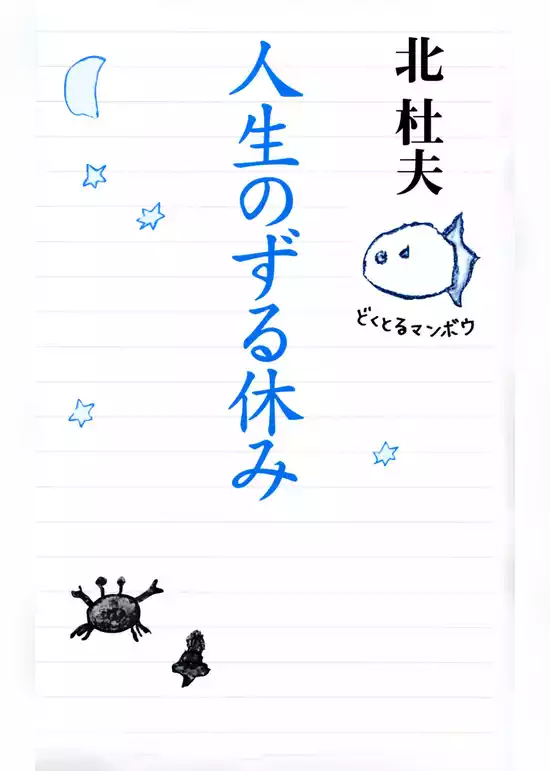 北 杜夫
人生のずる休み
どくとるマンボウ